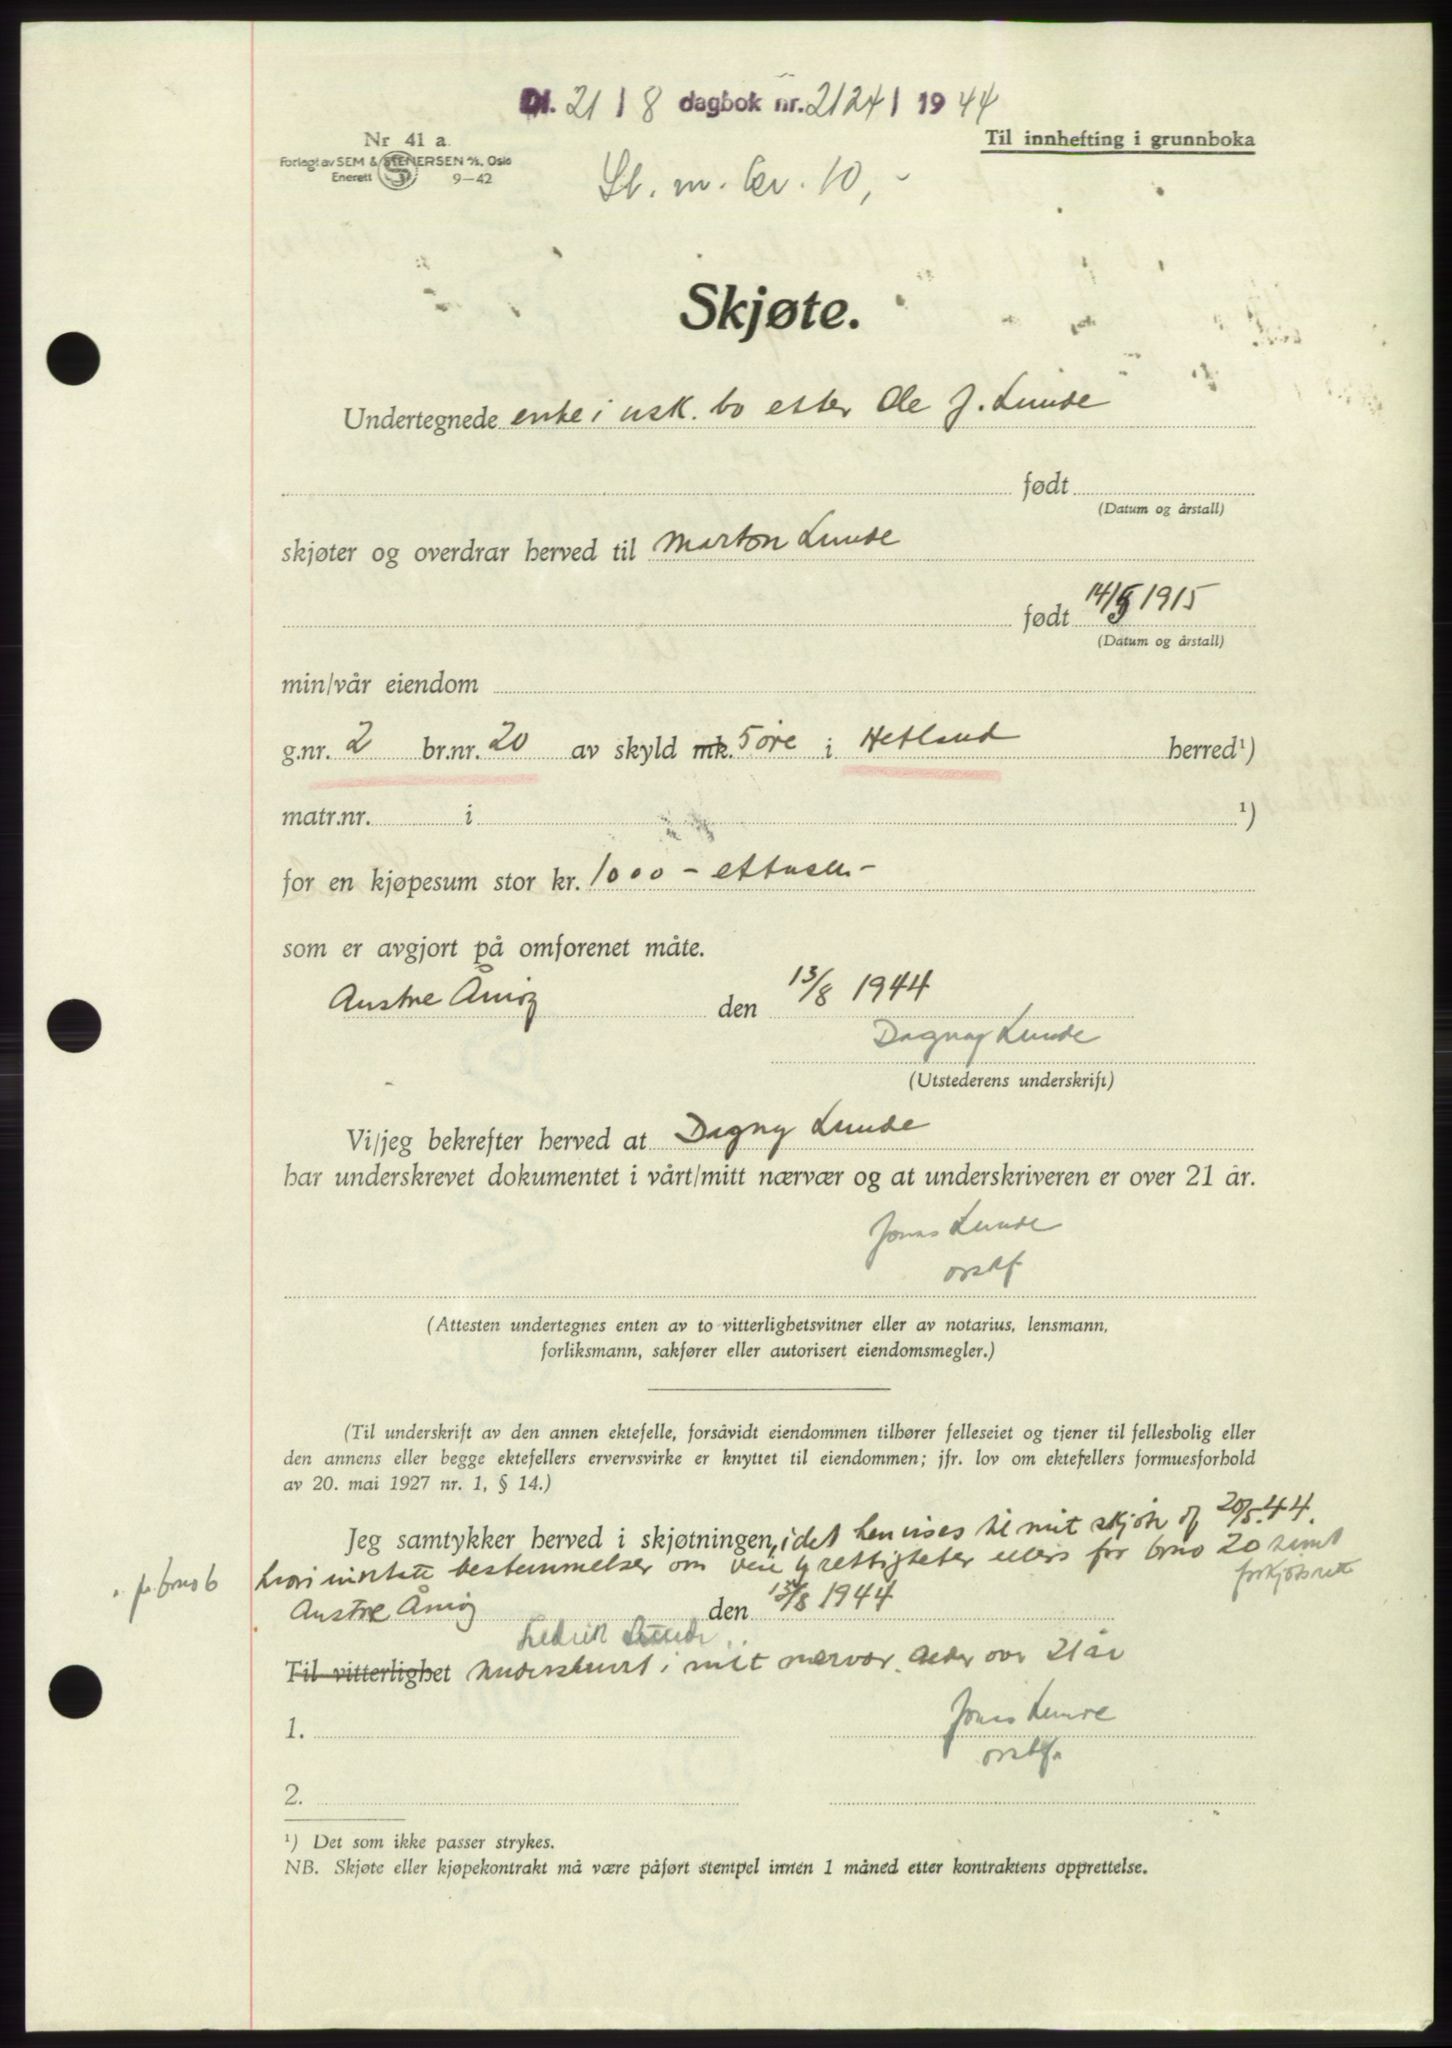 Dl. 21 / 8 dagbok nr. 2124 / 1944
Nr 41 a.
Forlagt av SEM & STENERSEN A/S, Oslo
Enerett 9-42
Til innhefting i grunnboka
St. m. kr. 10,-
Skjøte.
Undertegnede enke i usk. bo etter Ole J. Lunde
født
(Datum og årstall)
skjøter og overdrar herved til Marton Lunde
født 14/5 1915
(Datum og årstall)
min/vår eiendom
g.nr. 2 br.nr. 20 av skyld mk. 5 øre i Hetland herred¹)
matr.nr. i ¹)
for en kjøpesum stor kr. 1000 - ettusen -
som er avgjort på omforenet måte.
Austre Åmøy den 13/8 1944
Dagny Lunde
(Utstederens underskrift)
Vi/jeg bekrefter herved at Dagny Lunde
har underskrevet dokumentet i vårt/mitt nærvær og at underskriveren er over 21 år.
Jonas Lunde
(Attesten undertegnes enten av to vitterlighetsvitner eller av notarius, lensmann,
forliksmann, sakfører eller autorisert eiendomsmegler.)
(Til underskrift av den annen ektefelle, forsåvidt eiendommen tilhører felleseiet og tjener til fellesbolig eller
den annens eller begge ektefellers ervervsvirke er knyttet til eiendommen; jfr. lov om ektefellers formuesforhold
av 20. mai 1927 nr. 1, § 14.)
Jeg samtykker herved i skjøtningen, idet henvises til mitt skjøte af 20/5.44.
bestemmelser om veie rettigheter for bno 20 samt
forkjøpsrett
for bno 6
Austre Åmøy den 13/8 1944
Lunde
Til vitterlighet Underskrevet i mitt nærvær. Alder over 21 år
1. Jonas Lunde
2.
¹) Det som ikke passer strykes.
NB. Skjøte eller kjøpekontrakt må være påført stempel innen 1 måned etter kontraktens opprettelse.